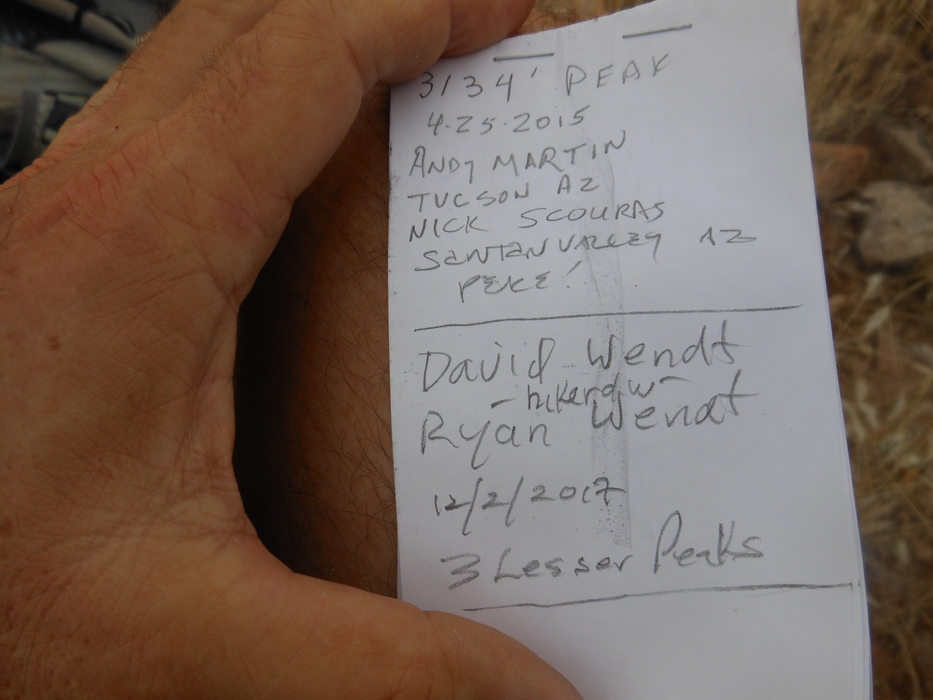 3134' PEAK
4-25-2015
ANDY MARTIN
TUCSON AZ
NICK SCOURAS
SANTAN VALLEY AZ
PEKE!
David Wendt
- hikerdw -
Ryan Wendt
12/2/2017
3 Lesser Peaks